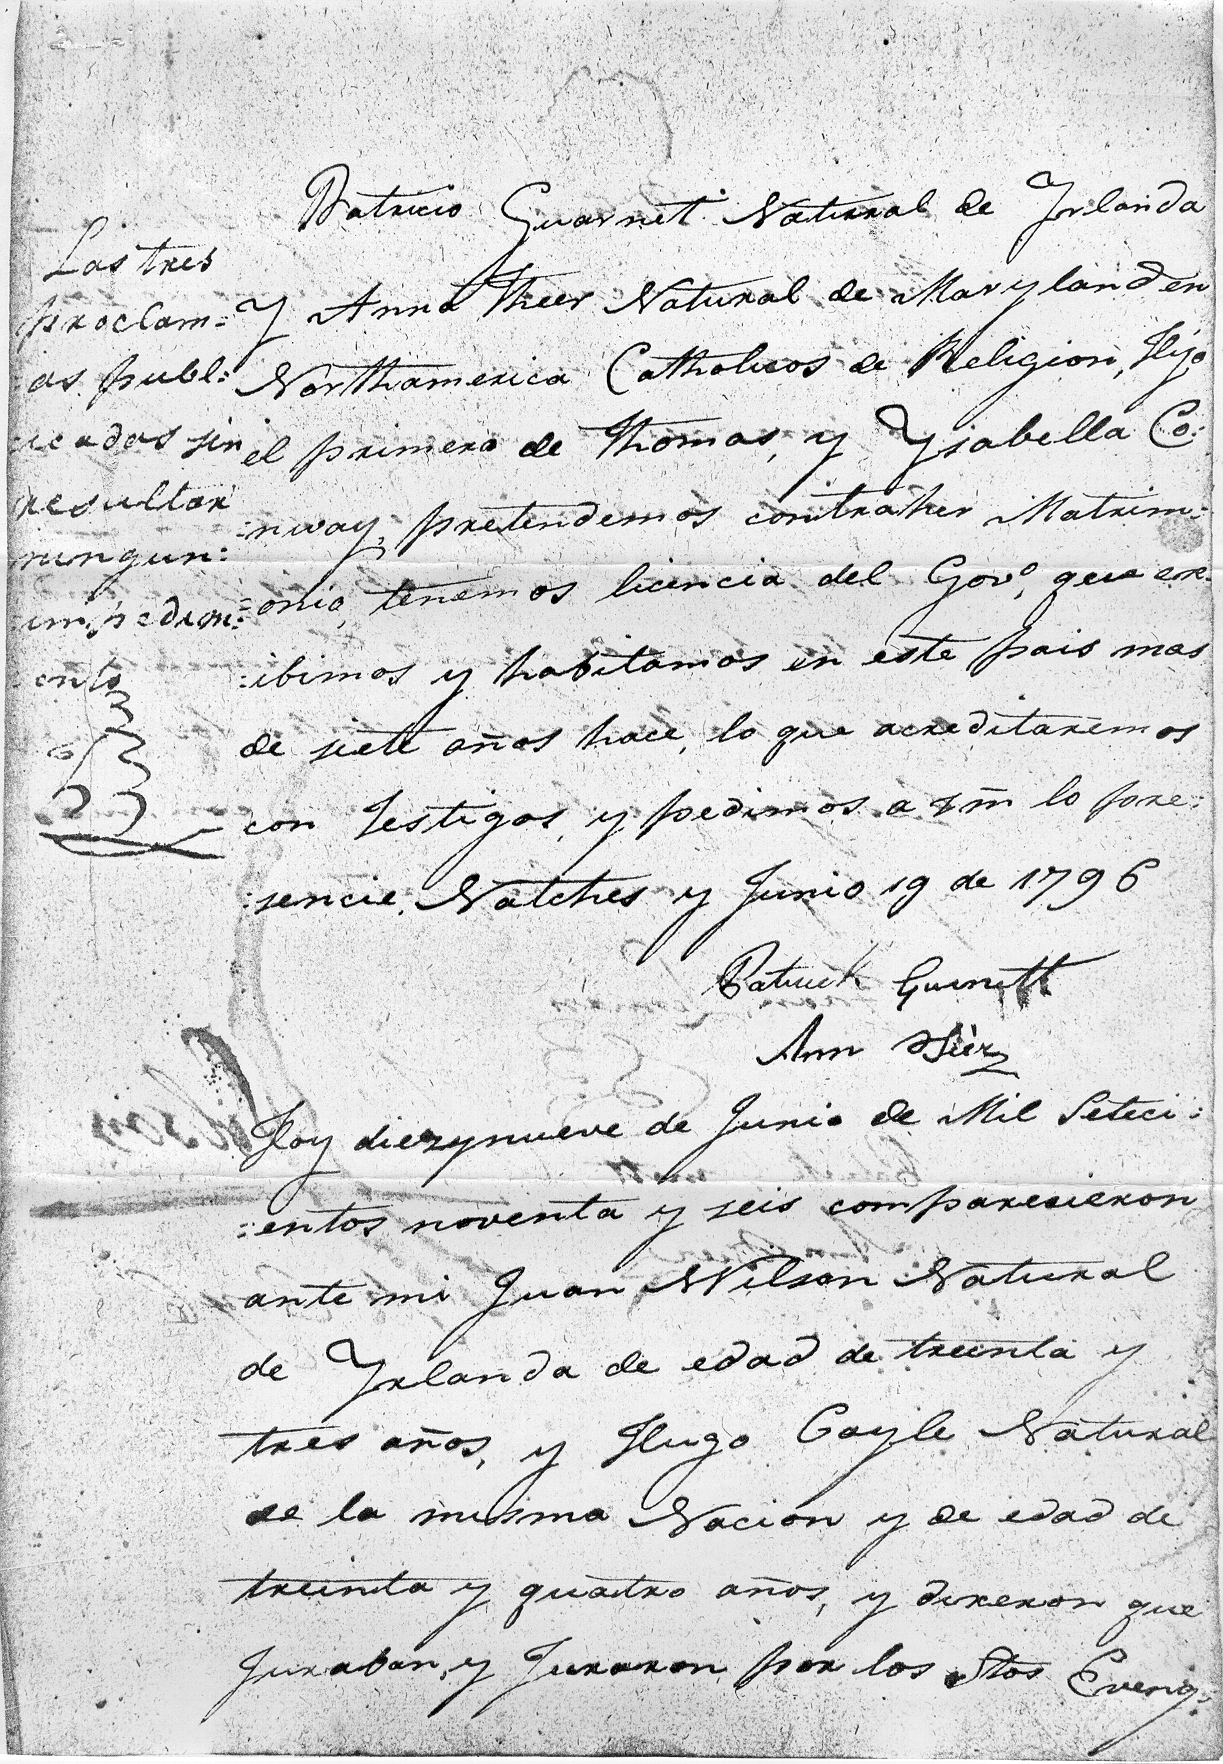 Las tres
proclam=
as publ=
icadas sin
resultar
ningun=
impedim=
ento
Patricio Guarnet Natural de Yrlanda
Y Anna Theer Natural de Maryland en
Northamerica Catholicos de Religion, Hijo
el primero de Thomas, y Ysabella Co:
:nway, pretendemos contraher Matrim:
:onio, tenemos licencia del Govo, que exi:
:ibimos y habitamos en este pais mas
de siete años hace, lo que acreditaremos
con Testigos, y pedimos a Vm lo pre:
:sencie, Natches y Junio 19 de 1796
Patrick Gurnett
Ann
Hoy diezynueve de Junio de Mil Seteci:
:entos noventa y seis comparecieron
ante mi Juan Wilson Natural
de Yrlanda de edad de treinta y
tres años, y Hugo Coyle Natural
de la misma Nacion y de edad de
treinta y quatro años, y dixeron que
Juraban, y Juraron por los Stos Evang: